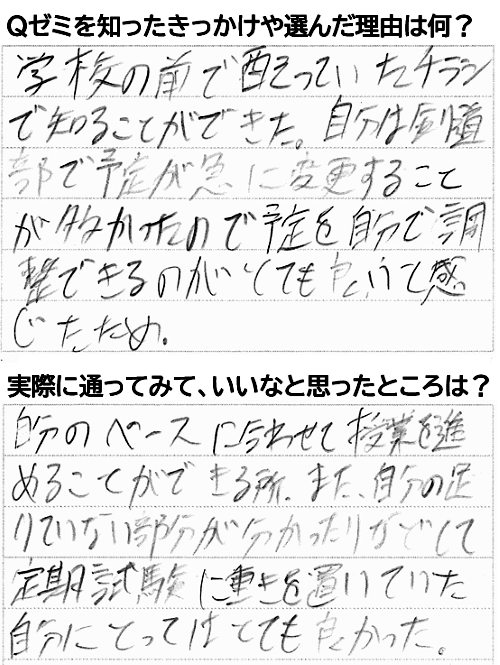 Qゼミを知ったきっかけや選んだ理由は何？
学校の前で配っていたチラシ
で知ることができた。自分は剣道
部で予定が急に変更すること
が多かったので予定を自分で調
整できるのがとても良いと感
じたため。
実際に通ってみて、いいなと思ったところは？
自分のペースに合わせて授業を進
めることができる所。また、自分の足
りていない部分が分かったりなどして
定期試験に重きを置いていた
自分にとってはとても良かった。